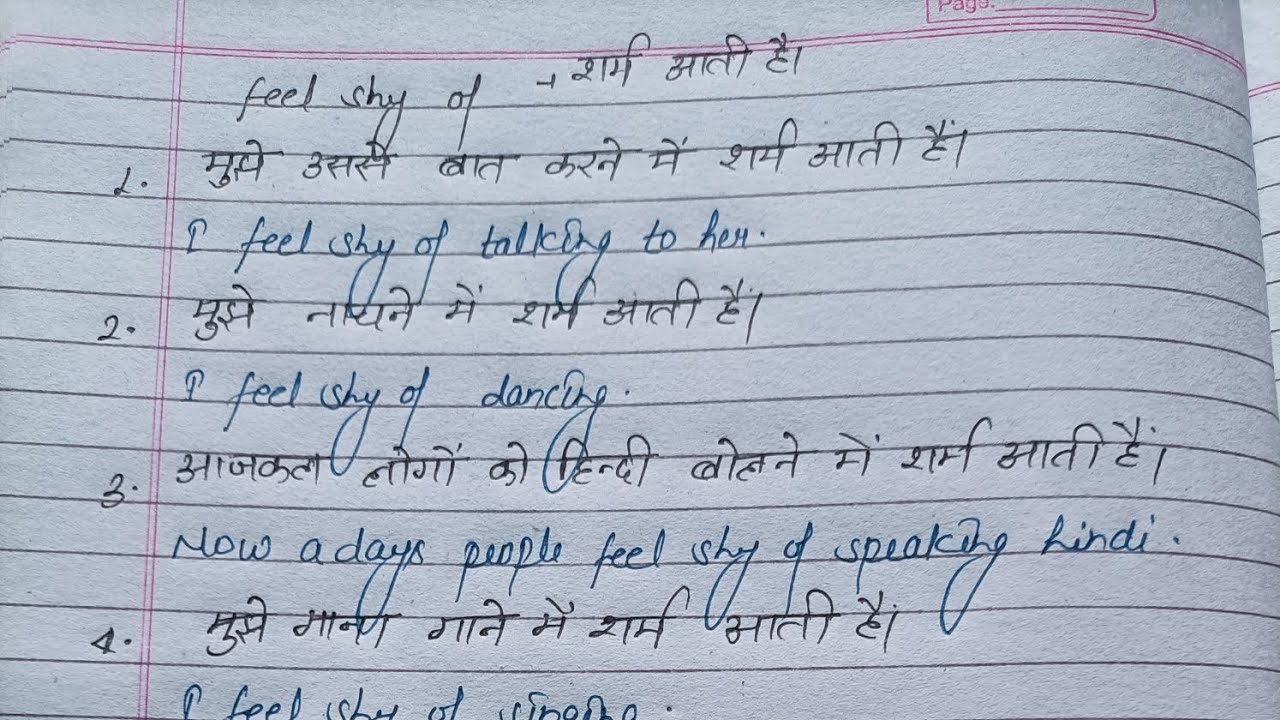 Page:
feel shy of → शर्म आती है।
1. मुझे उससे बात करने में शर्म आती हैं।
I feel shy of talking to her.
2. मुझे नाचने में शर्म आती हैं।
I feel shy of dancing.
3. आजकल लोगों को हिन्दी बोलने में शर्म आती हैं।
Now a days people feel shy of speaking hindi.
4. मुझे गाना गाने में शर्म आती है।
I feel shy of singing.